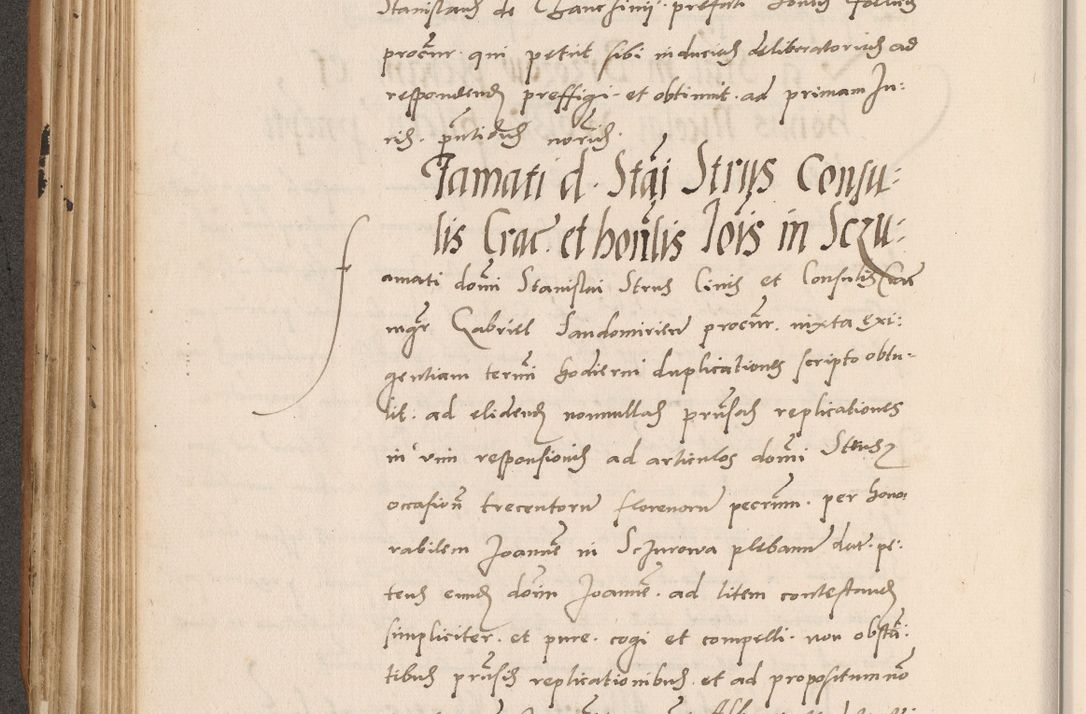 Stanislaus de
procur. qui petiit sibi inducias deliberatorias ad
respondend preffigi et obtinuit. ad primam Ju:
rid. pntibus
Famati d. Stai Strus Consu:
lis Crac. et honlis Jois in Sczu:
amati domi Stanislai Strus Civis et Consulis Crac
mgr Gabriel Sandomirien procur. iuxta exi:
gentiam termi hodierni duplicationes scripto obtu-
lit. ad elidend nonnullas prnsas replicationes
in vim responsionis ad articulos domi Strus
occasion trecentoru florenoru pecuniar. per hono:
rabilem Joanne in Sczurowa plebanu dat. pe:
tens eund domin Joanne. ad litem contestand
simpliciter. et pure. cogi et compelli. non obsta:
tibus prnsis replicationibus. et ad propositum no